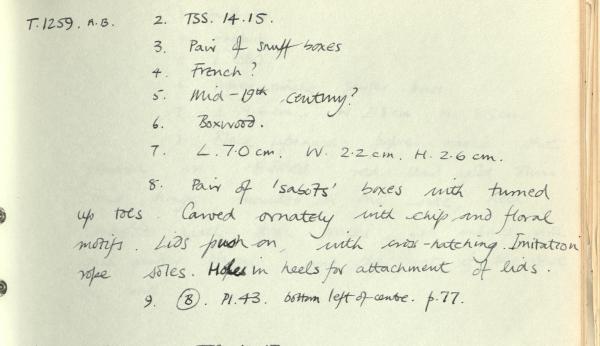 T.1259. A.B. 2. TSS. 14.15.
3. Pair of snuff boxes
4. French?
5. Mid-19th century?
6. Boxwood.
7. L. 7.0 cm. W. 2.2 cm. H. 2.6 cm.
8. Pair of 'sabots' boxes with turned
up toes. Carved ornately with chip and floral
motifs. Lids push on, with cross-hatching. Imitation
rope soles. Holes in heels for attachment of lids.
9. (B). Pl. 43. bottom left of centre. p.77.